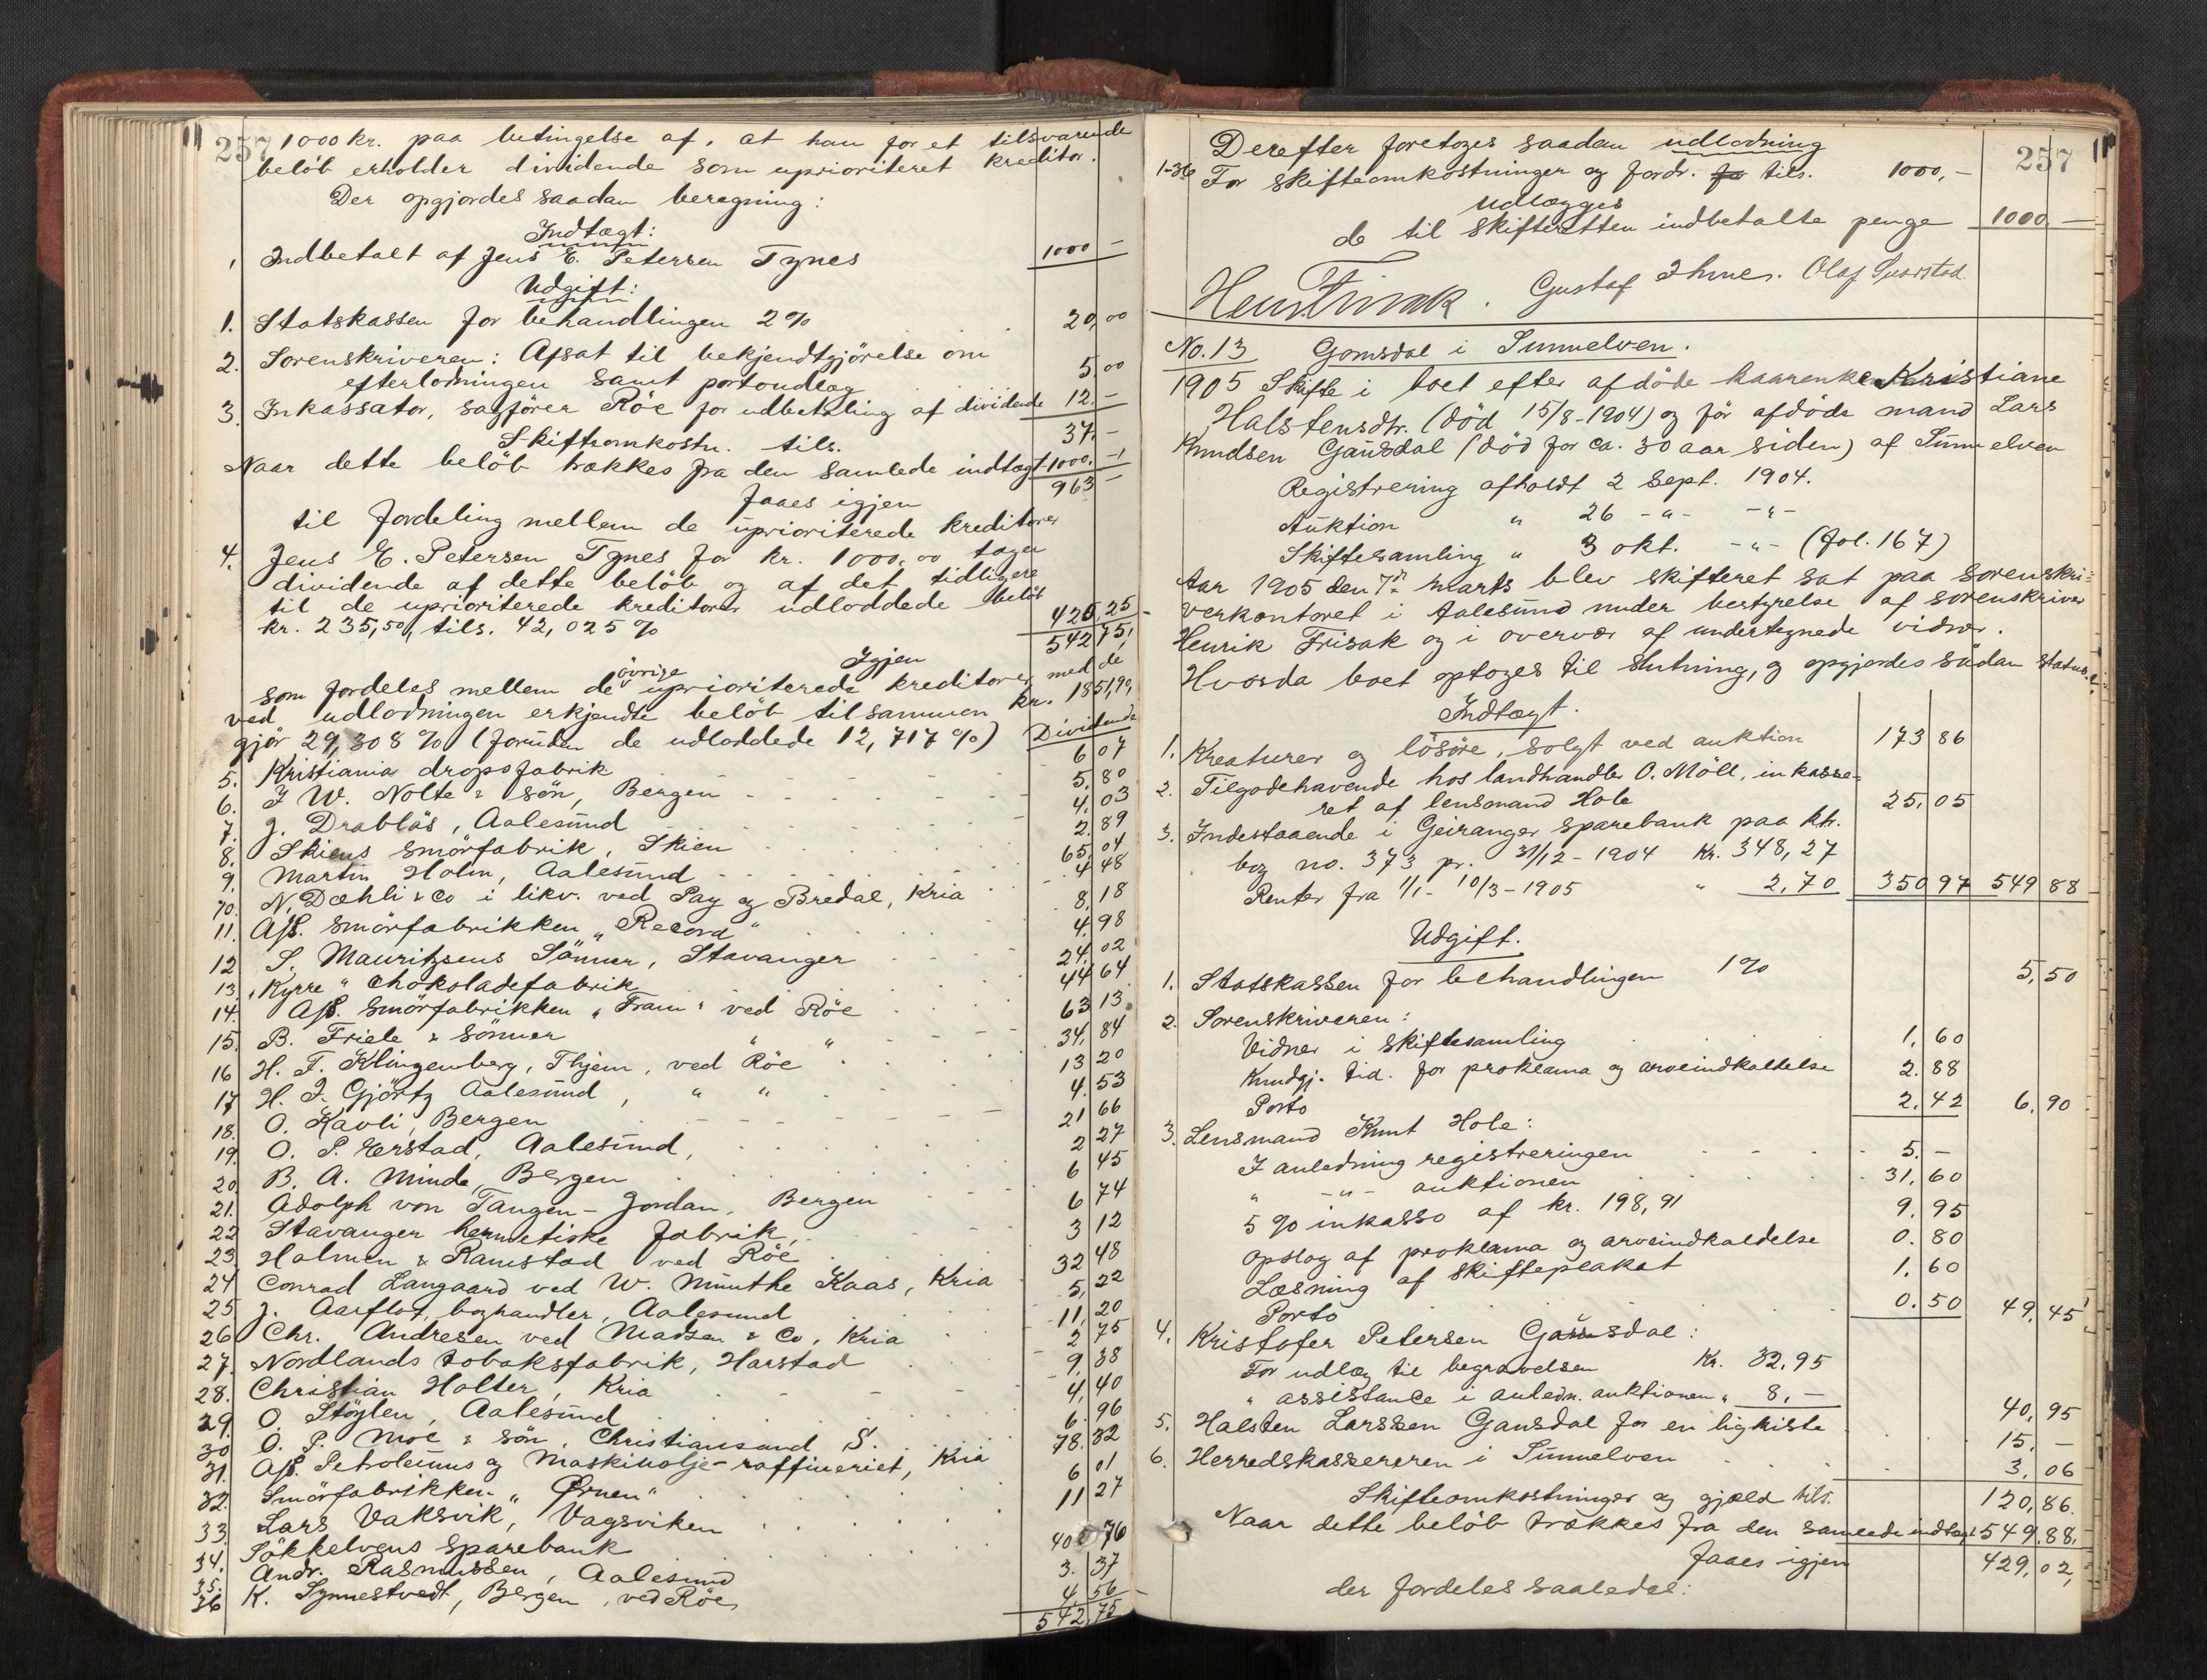 257 1000 kr. paa betingelse af, at han for et tilsvarende
beløb erholder dividende som uprioriteret kreditor.
Der opgjordes saadan beregning:
Indtægt:
1 Indbetalt af Jens E. Petersen Tynes 1000 –
Udgift:
1. Statskassen for behandlingen 2 % 20,00
2. Sorenskriveren: Afsat til bekjendtgjörelse om
efterlodningen samt portoudlæg 5,00
3. Inkassator, sagförer Röe for udbetaling af dividende 12. –
Skifteomkostn. tils. 37, –
Naar dette belöb trækkes fra den samlede indtægt 1000. –
faaes igjen 963 –
til fordeling mellem de uprioriterede kreditorer
4. Jens E. Petersen Tynes for kr. 1000,00 tager
dividende af dette belöb og af det tidligere
til de uprioriterede kreditorer udloddede belöb
kr. 235,50, tils. 42,025 % 420,25
Igjen 542 75,
som fordeles mellem de övrige uprioriterede kreditorer med de
ved udlodningen erkjendte belöb tilsammen kr. 1851,90,
gjör 29,308 % (foruden de udloddede 12,717 %) Dividende
5. Kristiania dropsfabrik 6 07
6. J W. Nolte & sön, Bergen 5. 80
7. J. Drabløs, Aalesund 4. 03
8. Skiens smörfabrik, Skien 2. 89
9. Martin Holm, Aalesund 65, 04
10. N. Dæhli & Co i likv. ved Pay og Bredal, Kria 4 48
11. A/S. smörfabrikken "Record" 8, 18
12 S. Mauritzens Sönner, Stavanger 4, 98
13. "Kyrre" chokoladefabrik 24, 02
14. A/S. smörfabrikken "Fram" ved Röe 44 64
15. B. Friele & sönner " " 63 13
16 H. F. Klingenberg, Thjem, ved Röe 34, 84
17 H. J. Gjörtz Aalesund, " " 13 20
18. O. Kavli, Bergen 4. 53
19. O. P. Herstad, Aalesund, 21 66
20. B. A. Minde, Bergen 2 27
21. Adolph von Tangen-Jordan, Bergen 6 45
22 Stavanger hermetiske fabrik, 6 74
23 Holmen & Ramstad ved Röe 3 12
24 Conrad Langaard ved W. Munthe Kaas, Kria 32 48
25 J. Aarflot, boghandler, Aalesund 5, 22
26 Chr. Andresen ved Madsen & Co, Kria 11, 20
27. Nordlands tobaksfabrik, Harstad 2 75
28. Christian Holter, Kria 9, 38
29. O. Stöylen, Aalesund 4, 40
30 O. P. Moe & sön, Christiansand S. 6. 96
31. A/S. Petroleums og Maskinolje-raffineriet, Kria 78. 32
32. Smörfabrikken "Ørnen" 6 01
33. Lars Vaksvik, Vagsviken 11 27
34. Sökkelvens sparebank 40 76
35. Andr. Rasmussen, Aalesund 3. 37
36 K. Synnestvedt, Bergen, ved Röe, 4, 56
542, 75
257
Derefter foretoges saadan udlodning
1-36 For skifteomkostninger og fordr. tils. 1000, –
Udlægges
de til skifteretten indbetalte penge 1000 –
Henr Frisak. Gustaf Ihme. Olaf
No. 13 Gomsdal i Sunnelven.
1905 Skifte i boet efter afdöde kaarenke Kristiane
Halstensdtr. (död 15/8-1904) og för afdöde mand Lars
Knudsen Gausdal (död for ca. 30 aar siden) af Sunnelven
Registrering afholdt 2 Sept. 1904.
Auktion " 26 -"- -"-
Skiftesamling " 3 okt. -"- (fol. 167)
Aar 1905 den 7de marts blev skifteret sat paa sorenskri-
verkontoret i Aalesund under bestyrelse af sorenskriver
Henrik Frisak og i overvær af undertegnede vidner.
Hvorda boet optoges til slutning, og opgjordes sådan status:
Indtægt.
1. Kreaturer og lösöre, solgt ved auktion 173 86
2. Tilgodehavende hos landhandler O. Möll, inkasse-
ret af lensmand Hole 25, 05
3. Indestaaende i Geiranger sparebank paa ktr.
bog no. 373 pr. 31/12-1904 Kr. 348, 27
Renter fra 1/1 - 10/3-1905 " 2,70 350 97 549 88
Udgift.
1. Statskassen for behandlingen 1 % 5, 50
2. Sorenskriveren:
Vidner i skiftesamling 1, 60
Kundgj. tid. for proklama og arveindkaldelse 2. 88
Porto 2. 42 6, 90
3. Lensmand Knut Hole:
I anledning registreringen 5. –
" -"- auktionen 31, 60
5 % inkasso af kr. 198, 91 9. 95
Opslag af proklama og arveindkaldelse 0. 80
Læsning af skifteplakat 1. 60
Porto 0. 50 49, 45
4. Kristofer Petersen Gausdal:
For udlæg til begravelsen Kr. 32, 95
" assistance i anledn. auktionen " 8, – 40, 95
5. Halsten Larssen Gausdal for en ligkiste 15, –
6. Herredskassereren i Sunnelven 3, 06
Skifteomkostninger og gjæld tils. 120, 86.
Naar dette belöb trækkes fra den samlede indtægt 549. 88,
faaes igjen 429, 02,
der fordeles saaledes: